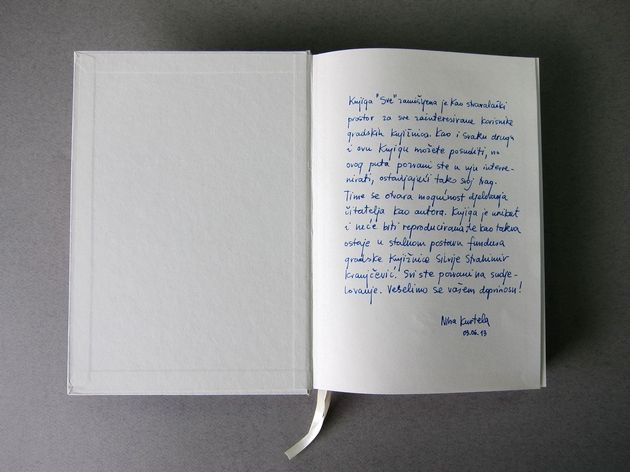 Knjiga "Sve" zamišljena je kao stvaralački
prostor za sve zainteresirane korisnike
gradskih knjižnica. Kao i svaku drugu
i ovu knjigu možete posuditi, no
ovog puta pozvani ste u nju interve-
nirati, ostavljajući tako svoj trag.
Time se otvara mogućnost djelovanja
čitatelja kao autora. Knjiga je unikat
i neće biti reproducirana te kao takva
ostaje u stalnom postavu fundusa
gradske knjižnice Silvije Strahimir
Kranjčević. Svi ste pozvani na sudje-
lovanje. Veselimo se vašem doprinosu!
Nina Kurtela
03.06.13